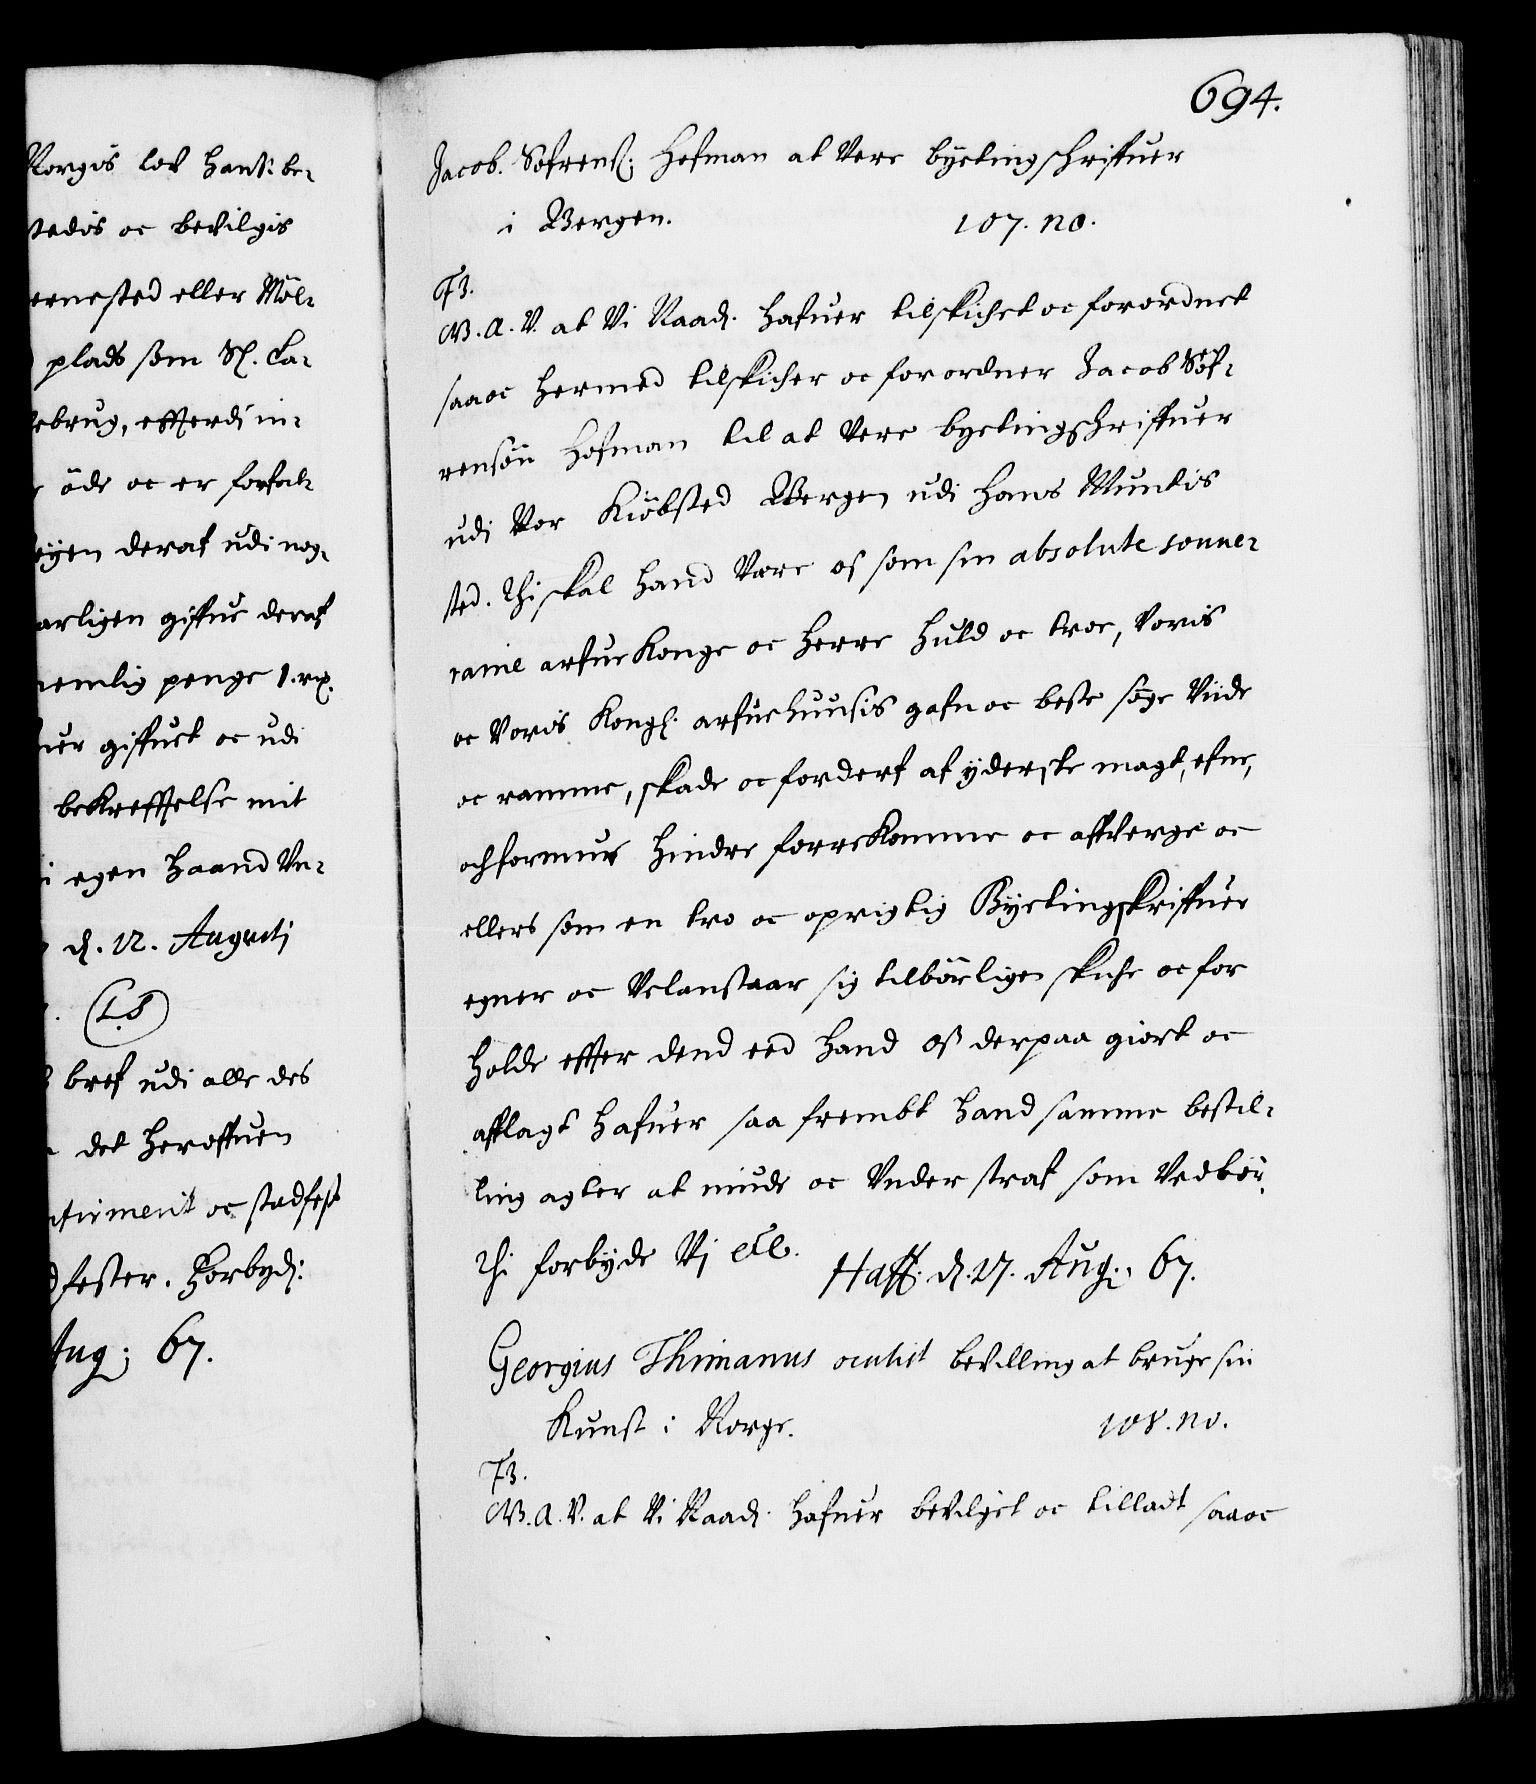 Norgis lov hanß: be-
stedis oc bevilgis
ernested eller Möl-
plads ßom Sl. La-
brug, efterdj in-
öde oc er forfal-
eyen deraf udi nog-
arligen giffue deraf
nemlig penge 1. rx.
uer giffuet oc udi
bekrefftelse mit
egen haand Un-
d. 12. Augusti
(L.S)
bref udi alle des
det heroffuen
ntiment oc stadfest
fester. Forbyd:
Aug: 67.
694.
Jacob. Sofrenß: Hofman at Vere byetingschriffuer
i Bergen. 107. no.
F3.
G.A.V. at Vi Naad: hafuer tilskichet oc forordnet
saa oc hermed tilskicher oc forordner Jacob Søf-
rensøn Hofman til at Vere byetingschriffuer
udi Vor Kiöbsted Bergen udi Hans Muntis
sted. Thi skal hand Være os som sin absolute souve-
raine arfue Konge oc Herre huld oc troe, Voris
oc Voris Kongl: arfuehuusis gafn oc beste søge Viide
oc ramme, skade oc forderf af yderste magt, efne,
och formue hindre forrekomme oc affverge oc
ellers som en tro oc oprigtig Byetingskriffuer
egner oc Velanstaar sig tilbörligen skiche oc for
holde effter dend eed hand oß derpaa giort oc
afflagt hafuer saa frembt hand samme bestil-
ling agter at niude oc Under straf som Vedbör.
Thi forbyde Vj etc. Haff. d. 17. Aug: 67.
Georgius Thimanus oculist bevilling at bruge sin
Kunst i Norge. 108. no.
F3.
G.A.V. at Vi Naad: hafuer bevilget oc tilladt saa oc